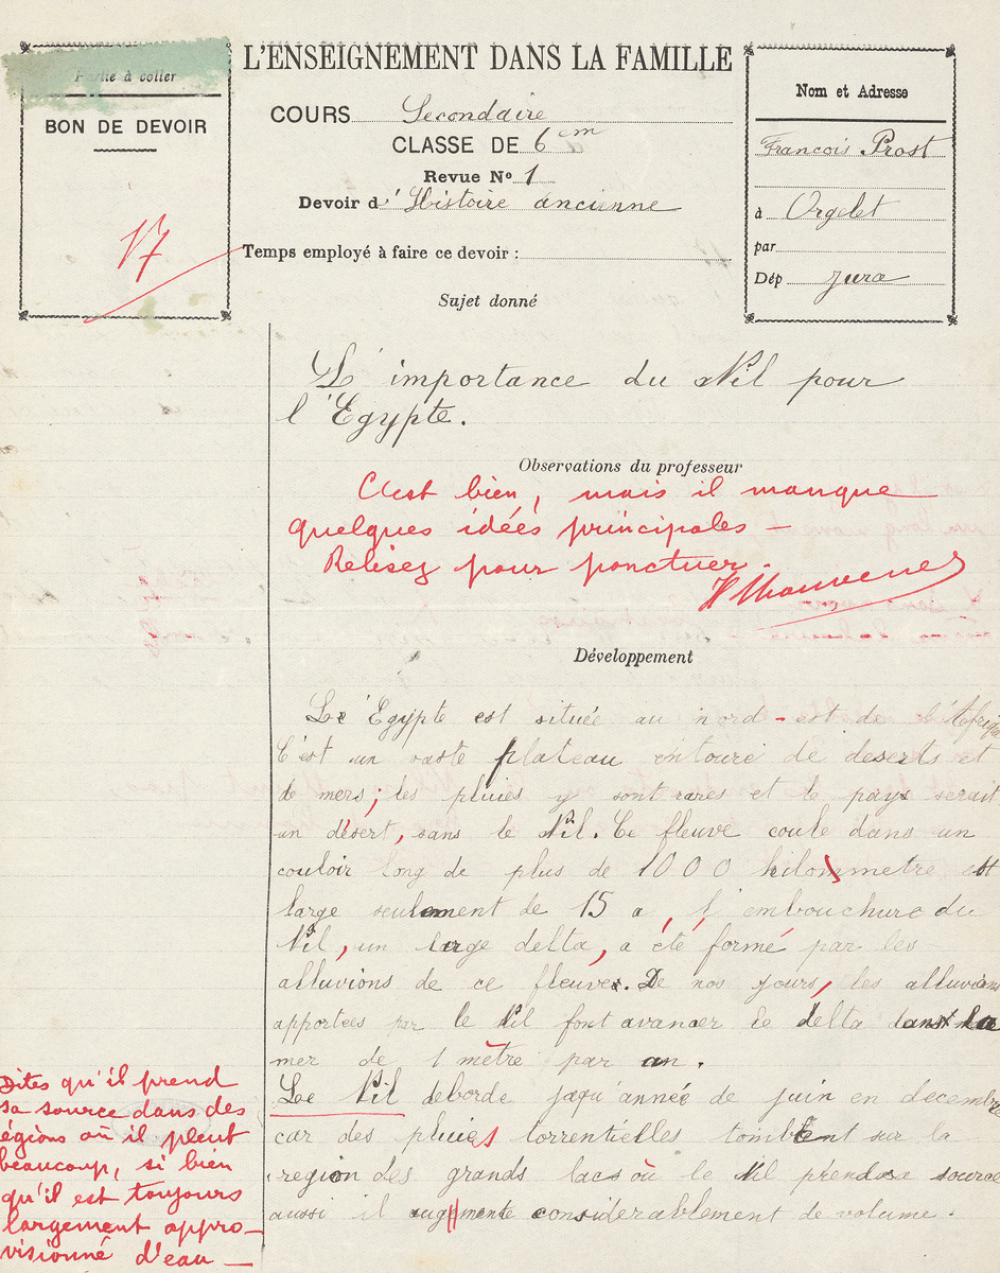 Partie à coller
BON DE DEVOIR
17
L'ENSEIGNEMENT DANS LA FAMILLE
COURS Secondaire
CLASSE DE 6em
Revue No 1
Devoir d'Histoire ancienne
Temps employé à faire ce devoir :
Nom et Adresse
Francois Prost
à Orgelet
par
Dép Jura
Sujet donné
L'importance du Nil pour
l'Egypte.
Observations du professeur
C'est bien, mais il manque
quelques idées principales —
Relisez pour ponctuer.
Développement
L'Egypte est située au nord-est de l'Afriqu
C'est un vaste plateau entouré de deserts et
de mers; les pluies y sont rares et le pays serait
un désert, sans le Nil. Ce fleuve coule dans un
couloir long de plus de 1000 kilommetre et
large seulement de 15 a, l'embouchure du
Nil, un large delta, a été formé par les
alluvions de ce fleuve. De nos jours, les alluvions
apportées par le Nil font avancer le delta dans la
mer de 1 mètre par an.
Le Nil deborde jaqu'année de juin en decembre
car des pluies torrentielles tombent sur la
region des grands lacs où le Nil prend sa source
aussi il augmente considerablement de volume.
Dites qu'il prend
sa source dans des
égions où il pleut
beaucoup, si bien
qu'il est toujours
largement appro-
visionné d'eau —